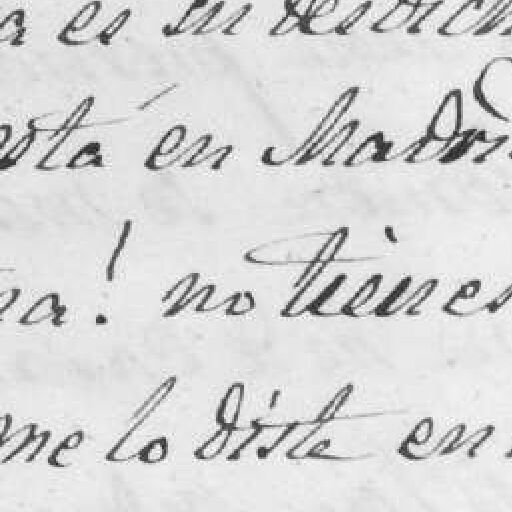 a es su desdich
está en Madri
na! no tienes
me lo diste en